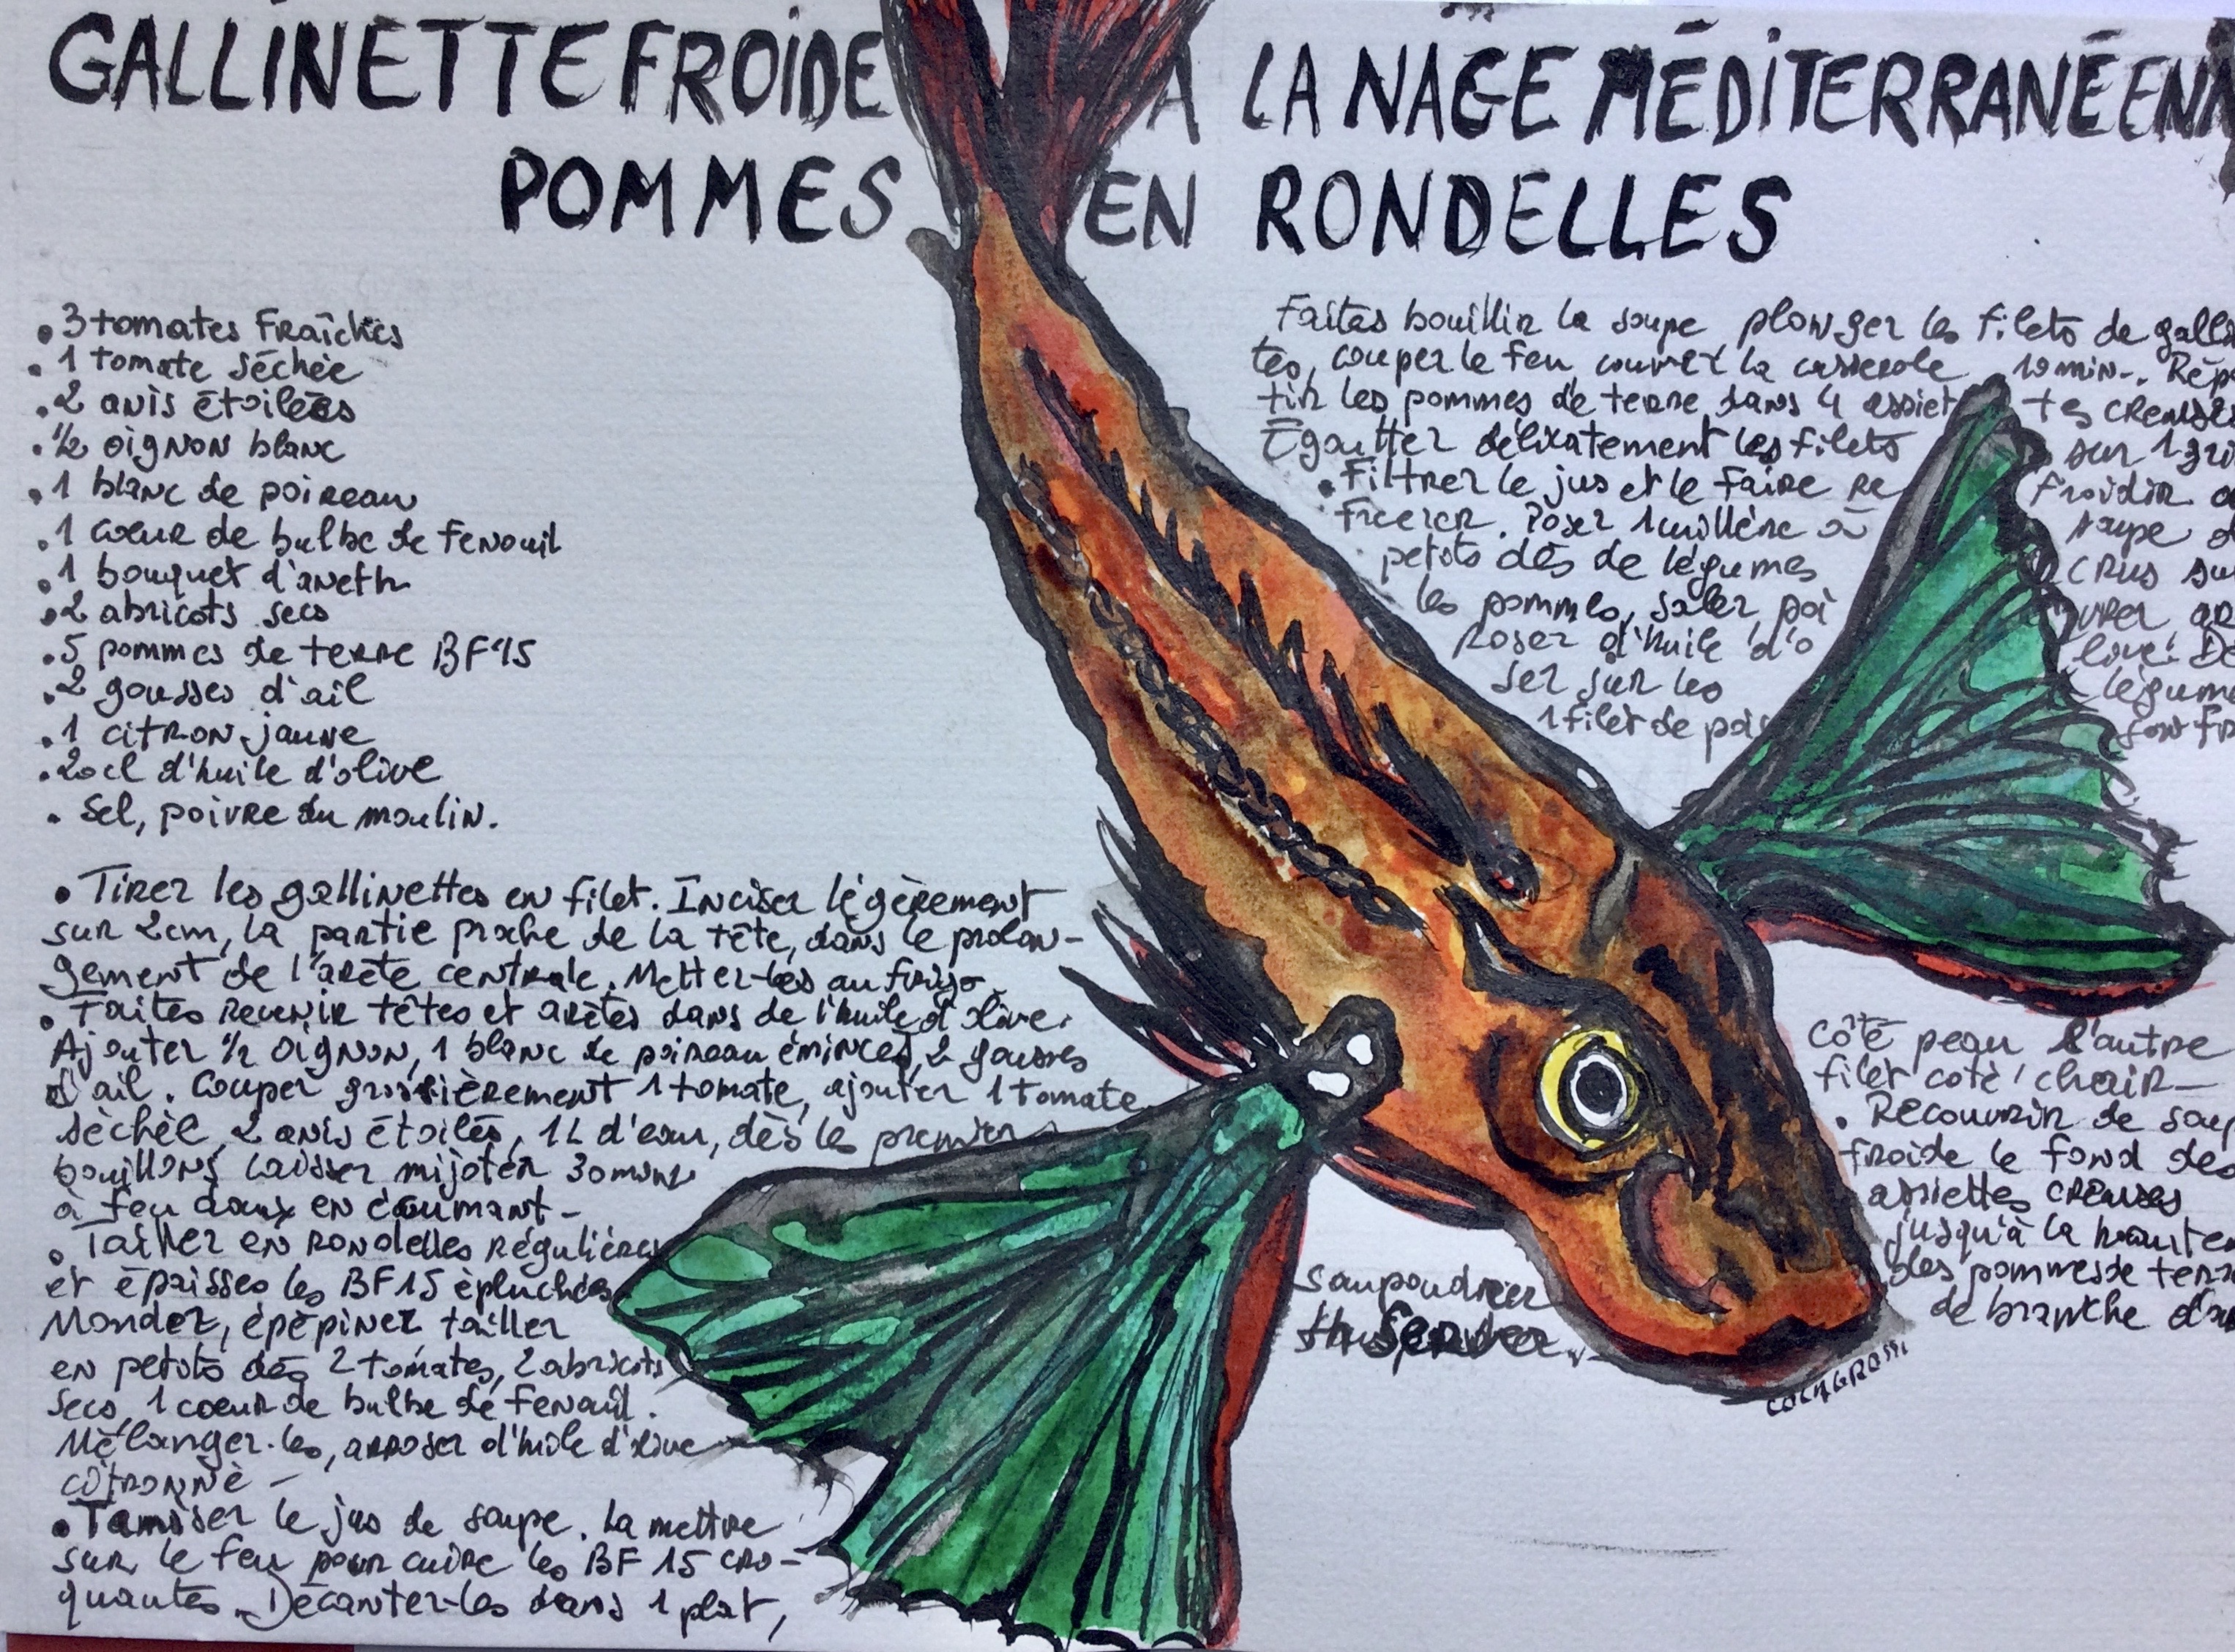 GALLINETTE FROIDE A LA NAGE MÉDITERRANÉENN
POMMES EN RONDELLES
• 3 tomates fraîches
• 1 tomate séchée
• 2 anis étoilées
• ½ oignon blanc
• 1 blanc de poireau
• 1 coeur de bulbe de fenouil
• 1 bouquet d'aneth
• 2 abricots secs
• 5 pommes de terre BF15
• 2 gousses d'ail
• 1 citron jaune
• 20cl d'huile d'olive
• Sel, poivre du moulin.
• Tirer les gallinettes en filet. Inciser légèrement
sur 2cm, la partie proche de la tête, dans le prolon-
gement de l'arête centrale. Metter-les au frigo.
• Faites revenir têtes et arêtes dans de l'huile d'olive.
Ajouter ½ oignon, 1 blanc de poireau émincés, 2 gousses
d'ail. Couper grossièrement 1 tomate, ajouter 1 tomate
séchée, 2 anis étoilés, 1L d'eau, dès le premier
bouillons, laisser mijoter 30 mins
à feu doux en écumant -
• Tailler en rondelles régulières
et épaisses les BF15 épluchés
Monder, épépiner tailler
en petits dés 2 tomates, 2 abricots
secs, 1 coeur de bulbe de fenouil.
Mélanger-les, arroser d'huile d'olive
citronné -
• Tamiser le jus de soupe. La mettre
sur le feu pour cuire les BF 15 cro-
quantes. Décanter-les dans 1 plat,
Faites bouillir la soupe, plonger les filets de gallin
tes, couper le feu couvrez la casserole 10 min-. Répar
tir les pommes de terre dans 4 assiet tes creuses
Égoutter délikatement les filets sur 1 gri
• Filtrer le jus et le faire re froidir
Poser 1 cuillère à soupe
petits dés de légumes crus su
les pommes, saler, poi vrer
d'huile d'o live. De
ser sur les légume
1 filet de pois son fr
côté peau l'autre
filet coté chair -
• Recouvrir de soup
froide le fond des
assiettes creuses
jusqu'à la haute
des pommes de terr
de branche d'an
Saupoudrer
Server